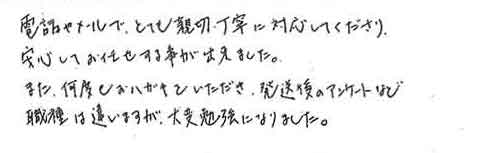 電話やメールで、とても親切、丁寧に対応してくださり、
安心してお任せする事が出来ました。
また、何度もおハガキをいただき、発送後のアンケートなど
職種は違いますが、大変勉強になりました。